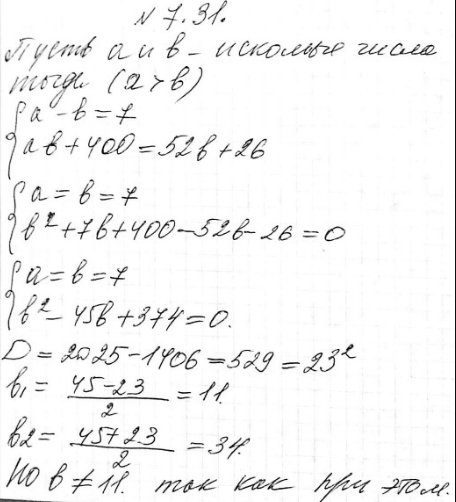 N 7.31.
Пусть а и в - искомые числа
тогда (а > в)
{ а - в = 7
{ ав + 400 = 52в + 26
{ а = в = 7
{ в² + 7в + 400 - 52в - 26 = 0
{ а = в = 7
{ в² - 45в + 374 = 0.
D = 2025 - 1406 = 529 = 23²
в₁ = (45-23)/2 = 11.
в2 = (45+23)/2 = 34.
Но в ≠ 11. так как при этом.